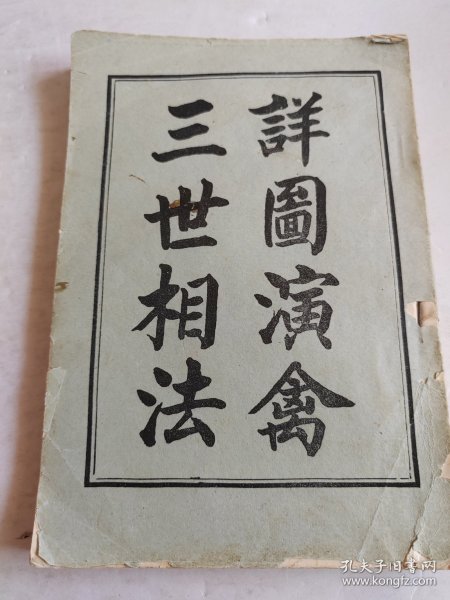 詳圖演禽
三世相法
孔夫子旧书网
www.kongfz.com